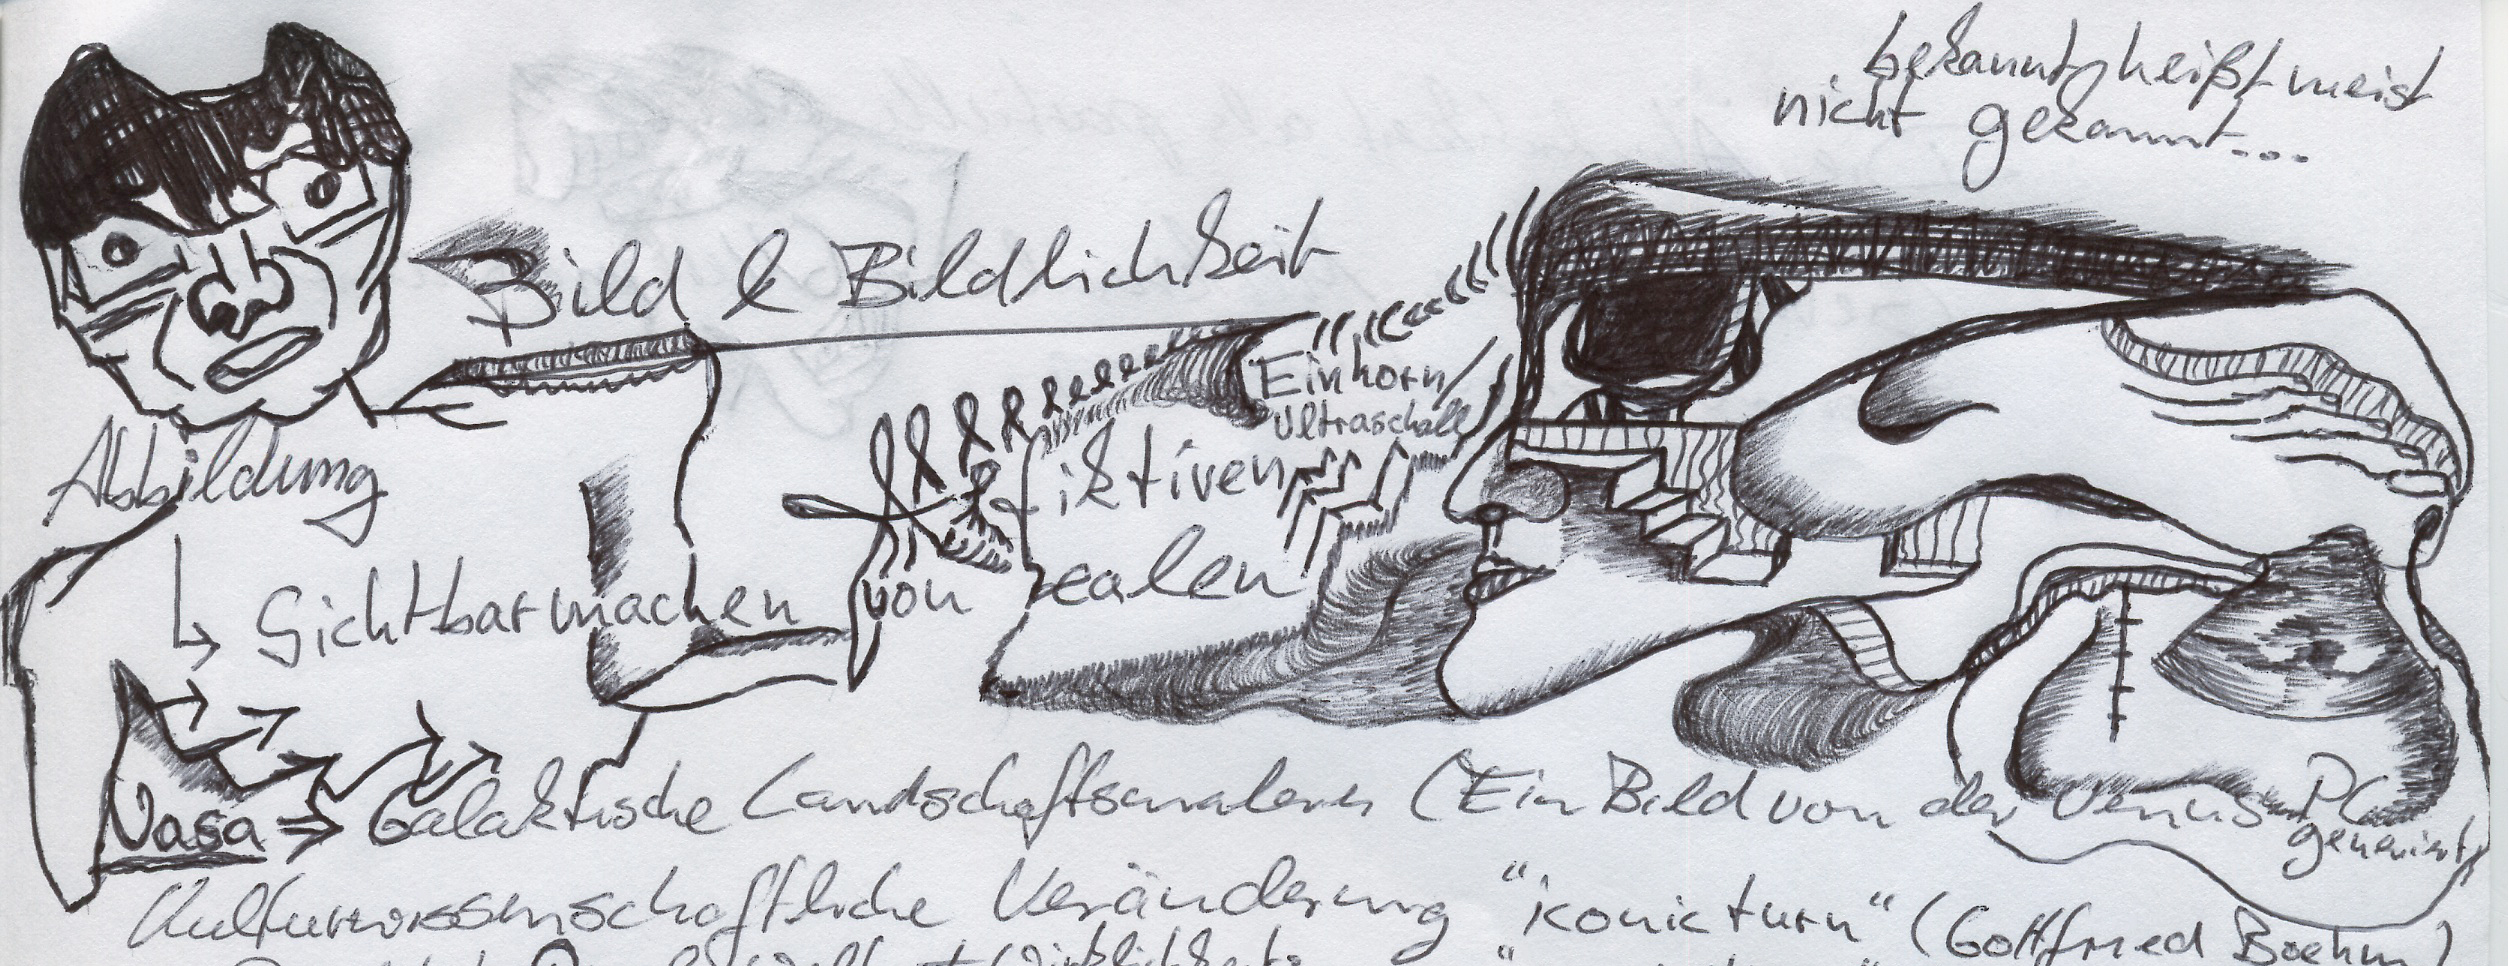 bekannt heißt meist
nicht gekannt...
Bild & Bildlichkeit
Einhorn/
Ultraschall
Abbildung
fiktiven
↳ Sichtbarmachen von realen
Nasa ⇒ Galaktische Landschaftsmalerei (Ein Bild von der Venus PC
generiert)
Kulturwissenschaftliche Veränderung "iconic turn" (Gottfried Boehm)